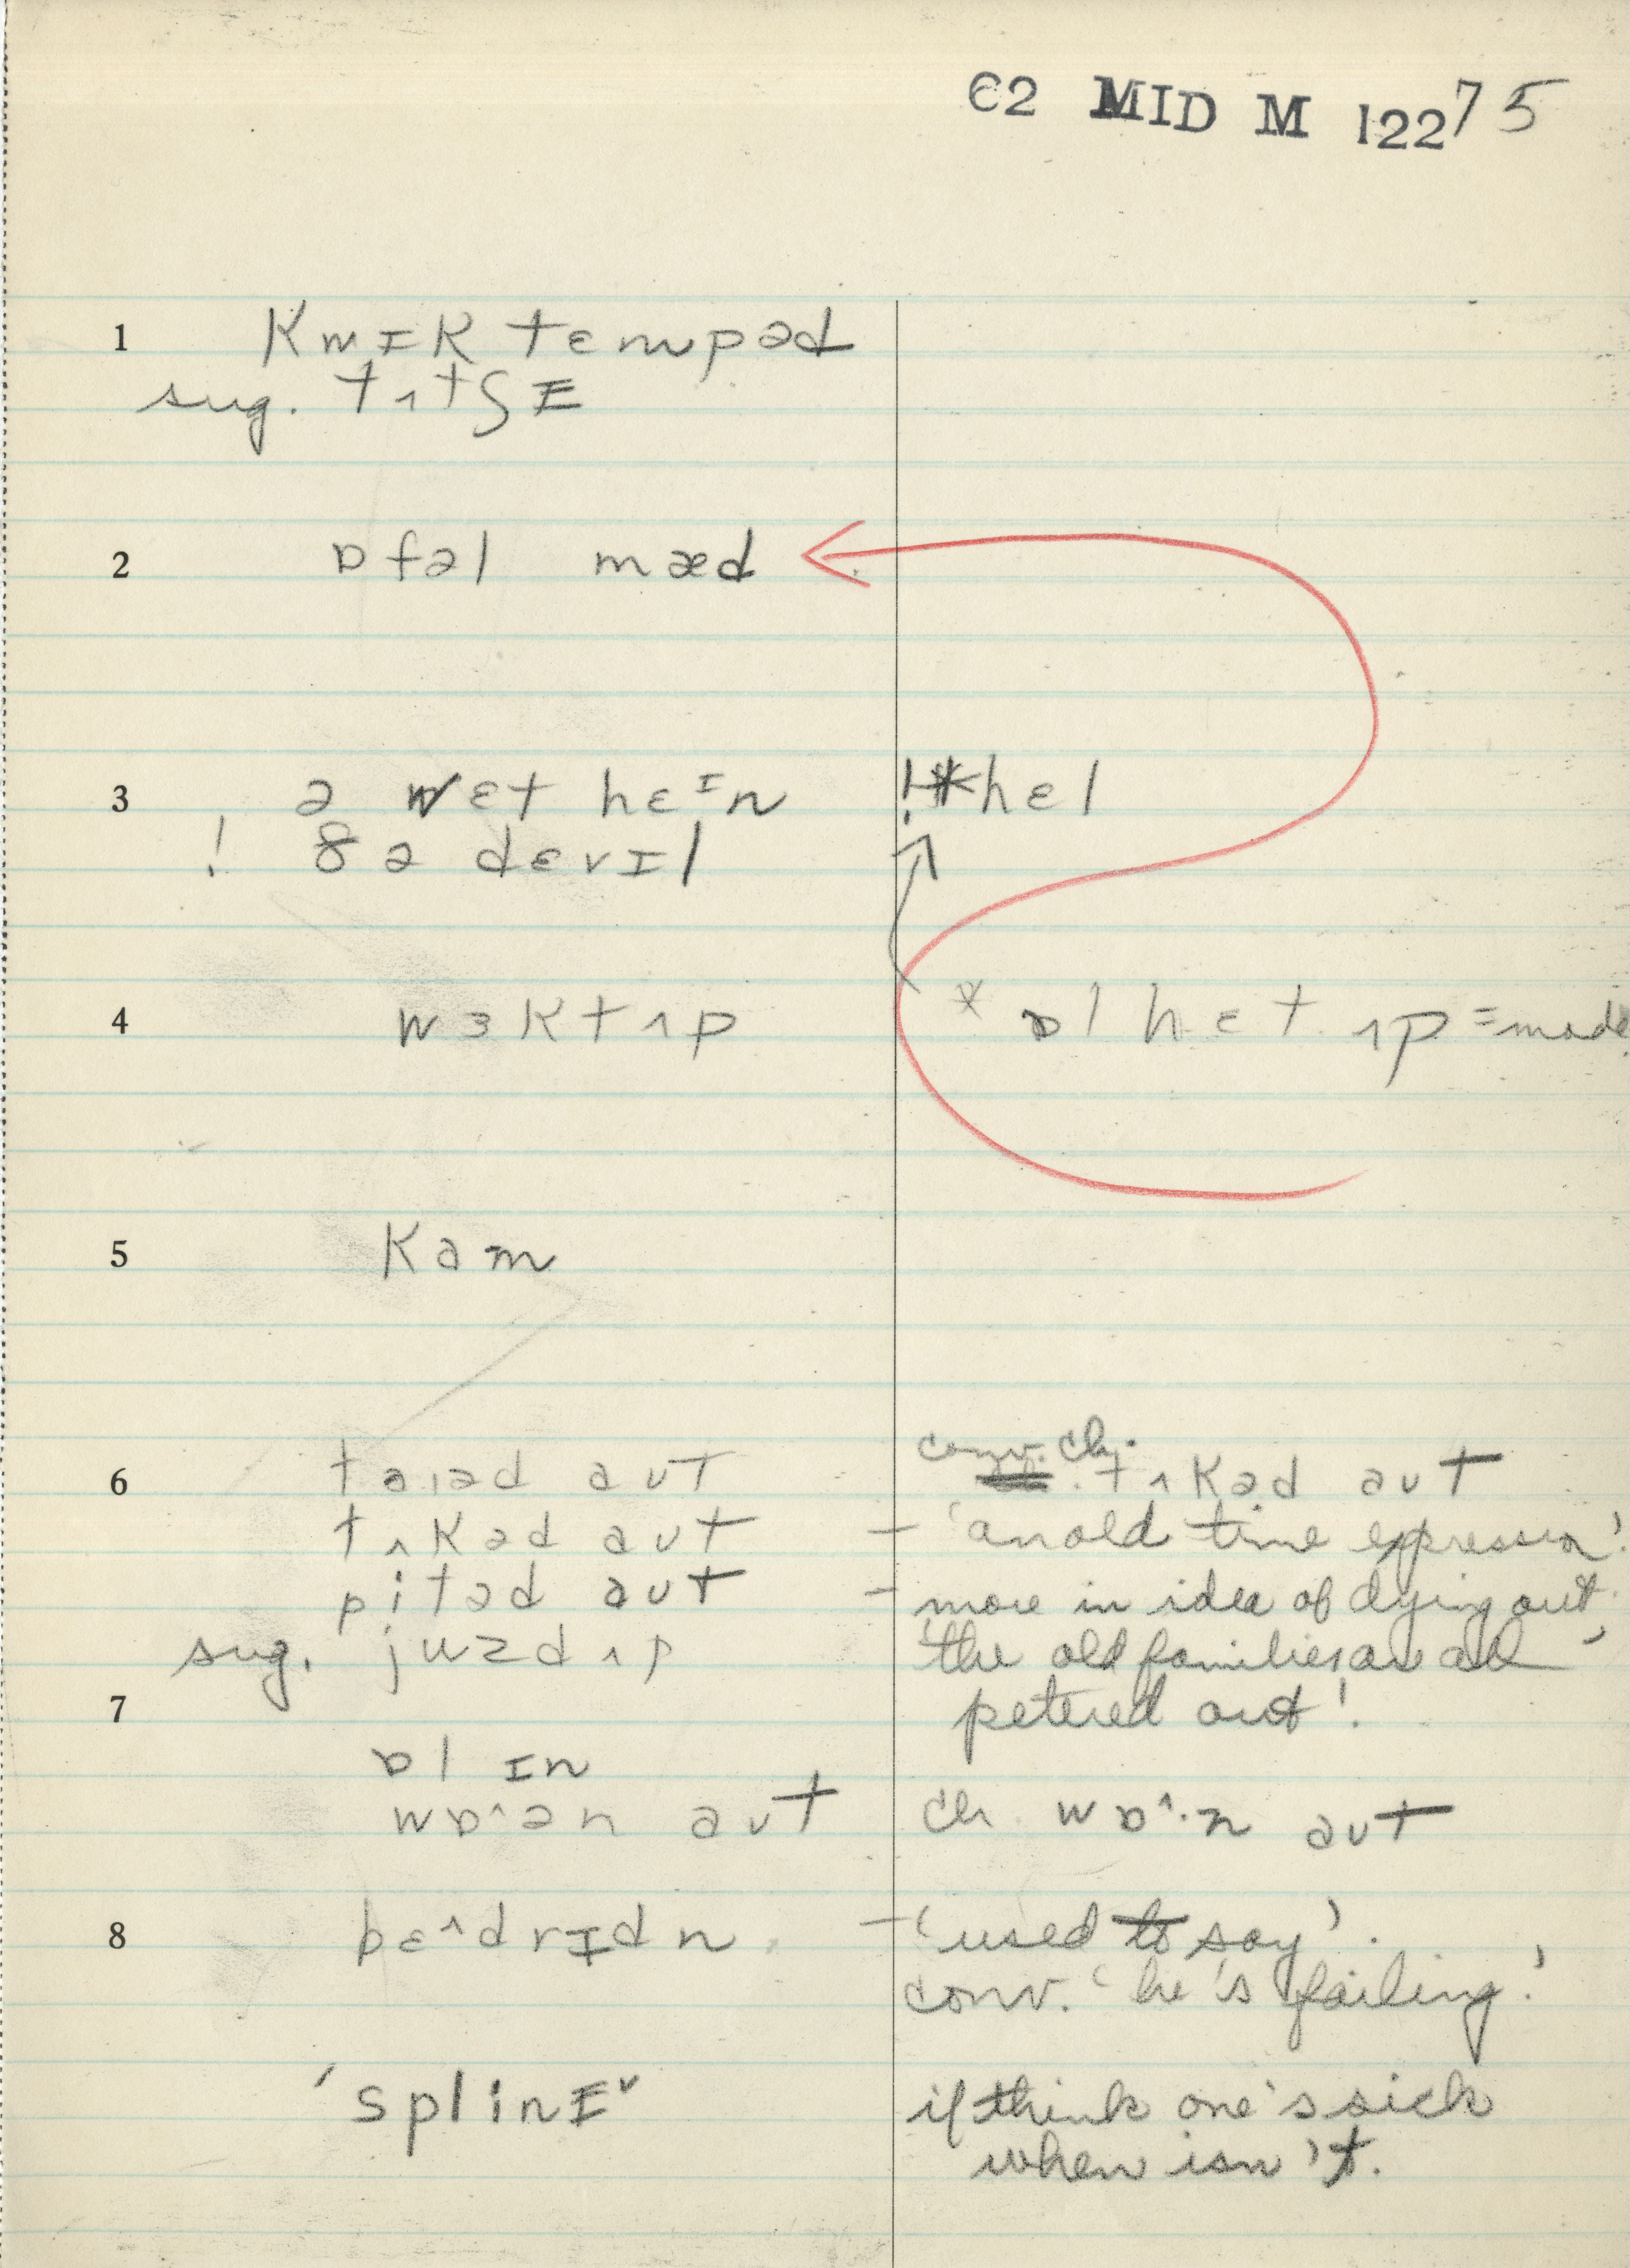 62 MID M 12275
1 kwɪk tɛmpəd
sug. tʌtʃɪ
2 ɒfəl mæd
3 ə wɛt hɛᴵn !*hɛl
! ðə dɛvɪl
4 wɜktʌp * ɒl hɛt ʌp = made
5 kam
conv. ch.
6 taɪəd aʊt tʌkəd aʊt
tʌkəd aʊt – 'an old time expression'.
pitəd aʊt – more in idea of dying out.
sug. juzdʌp 'the old families are all
7 petered out'.
ɒl ɪn
wɒ^ən aʊt ch wɒ^·n aʊt
8 bɛ^drɪdn – 'used to say'.
conv. 'he's failing'.
'splinɪˇ if think one's sick
when isn't.